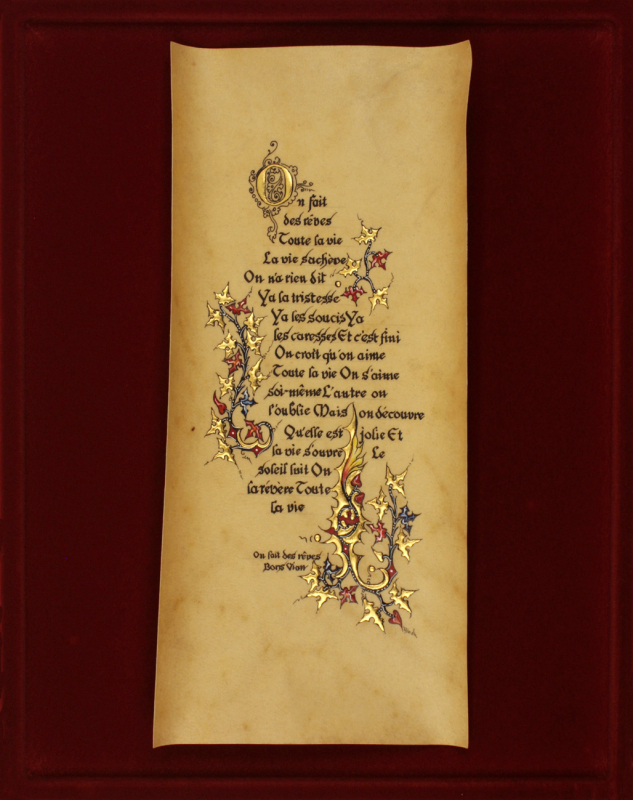 On fait
des rêves
Toute la vie
La vie s'achève
On n'a rien dit
Ya la tristesse
Ya les soucis Ya
les caresses Et c'est fini
On croit qu'on aime
Toute la vie On s'aime
soi-même L'autre on
l'oublie Mais on découvre
Qu'elle est jolie Et
la vie s'ouvre Le
soleil luit On
la révère Toute
la vie
On fait des rêves
Boris Vian